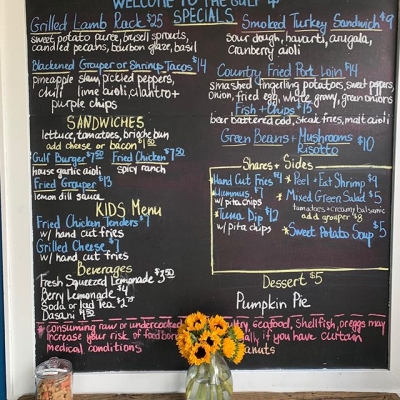 WELCOME TO THE GULF
SPECIALS
Grilled Lamb Rack $25
sweet potato puree, brusell sprouts,
candied pecans, bourbon glaze, basil
Blackened Grouper or Shrimp Tacos $14
pineapple slaw, pickled peppers,
chili lime aioli, cilantro +
purple chips
SANDWICHES
lettuce, tomatoes, brioche bun
add cheese or bacon $1.50
Gulf Burger $7.50
house garlic aioli
Fried Chicken $7.50
spicy ranch
Fried Grouper $13
lemon dill sauce
KIDS Menu
Fried Chicken Tenders $7
w/ hand cut fries
Grilled Cheese $7
w/ hand cut fries
Beverages
Fresh Squeezed Lemonade $3.50
Berry Lemonade $4
Soda or Iced Tea $2.75
Dasani
Smoked Turkey Sandwich $9
sour dough, havarti, arugala,
cranberry aioli
Country Fried Pork Loin $14
smashed fingerling potatoes, sweet peppers,
onion, fried egg, white gravy, green onions
Fish + Chips
beer battered cod, steak fries, malt aioli
Green Beans + Mushrooms
Risotto $10
Shares + Sides
Hand Cut Fries $4
Hummus $7
w/ pita chips
*Tuna Dip $12
w/ pita chips
* Peel + Eat Shrimp $9
* Mixed Green Salad $5
tomatoes + creamy balsamic
add grouper $8
*Sweet Potato Soup $5
Dessert $5
Pumpkin Pie
* consuming raw or undercooked poultry, seafood, shellfish, or eggs may
increase your risk of food borne if you have certain
medical conditions peanuts